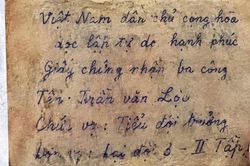 Việt Nam dân chủ cộng hòa
độc lập tự do hạnh phúc
Giấy chứng nhận ba công
Tên: Trần văn Lợi
Chức vụ: Tiểu đội trưởng
đơn vị: đại đội 3 - III Tập